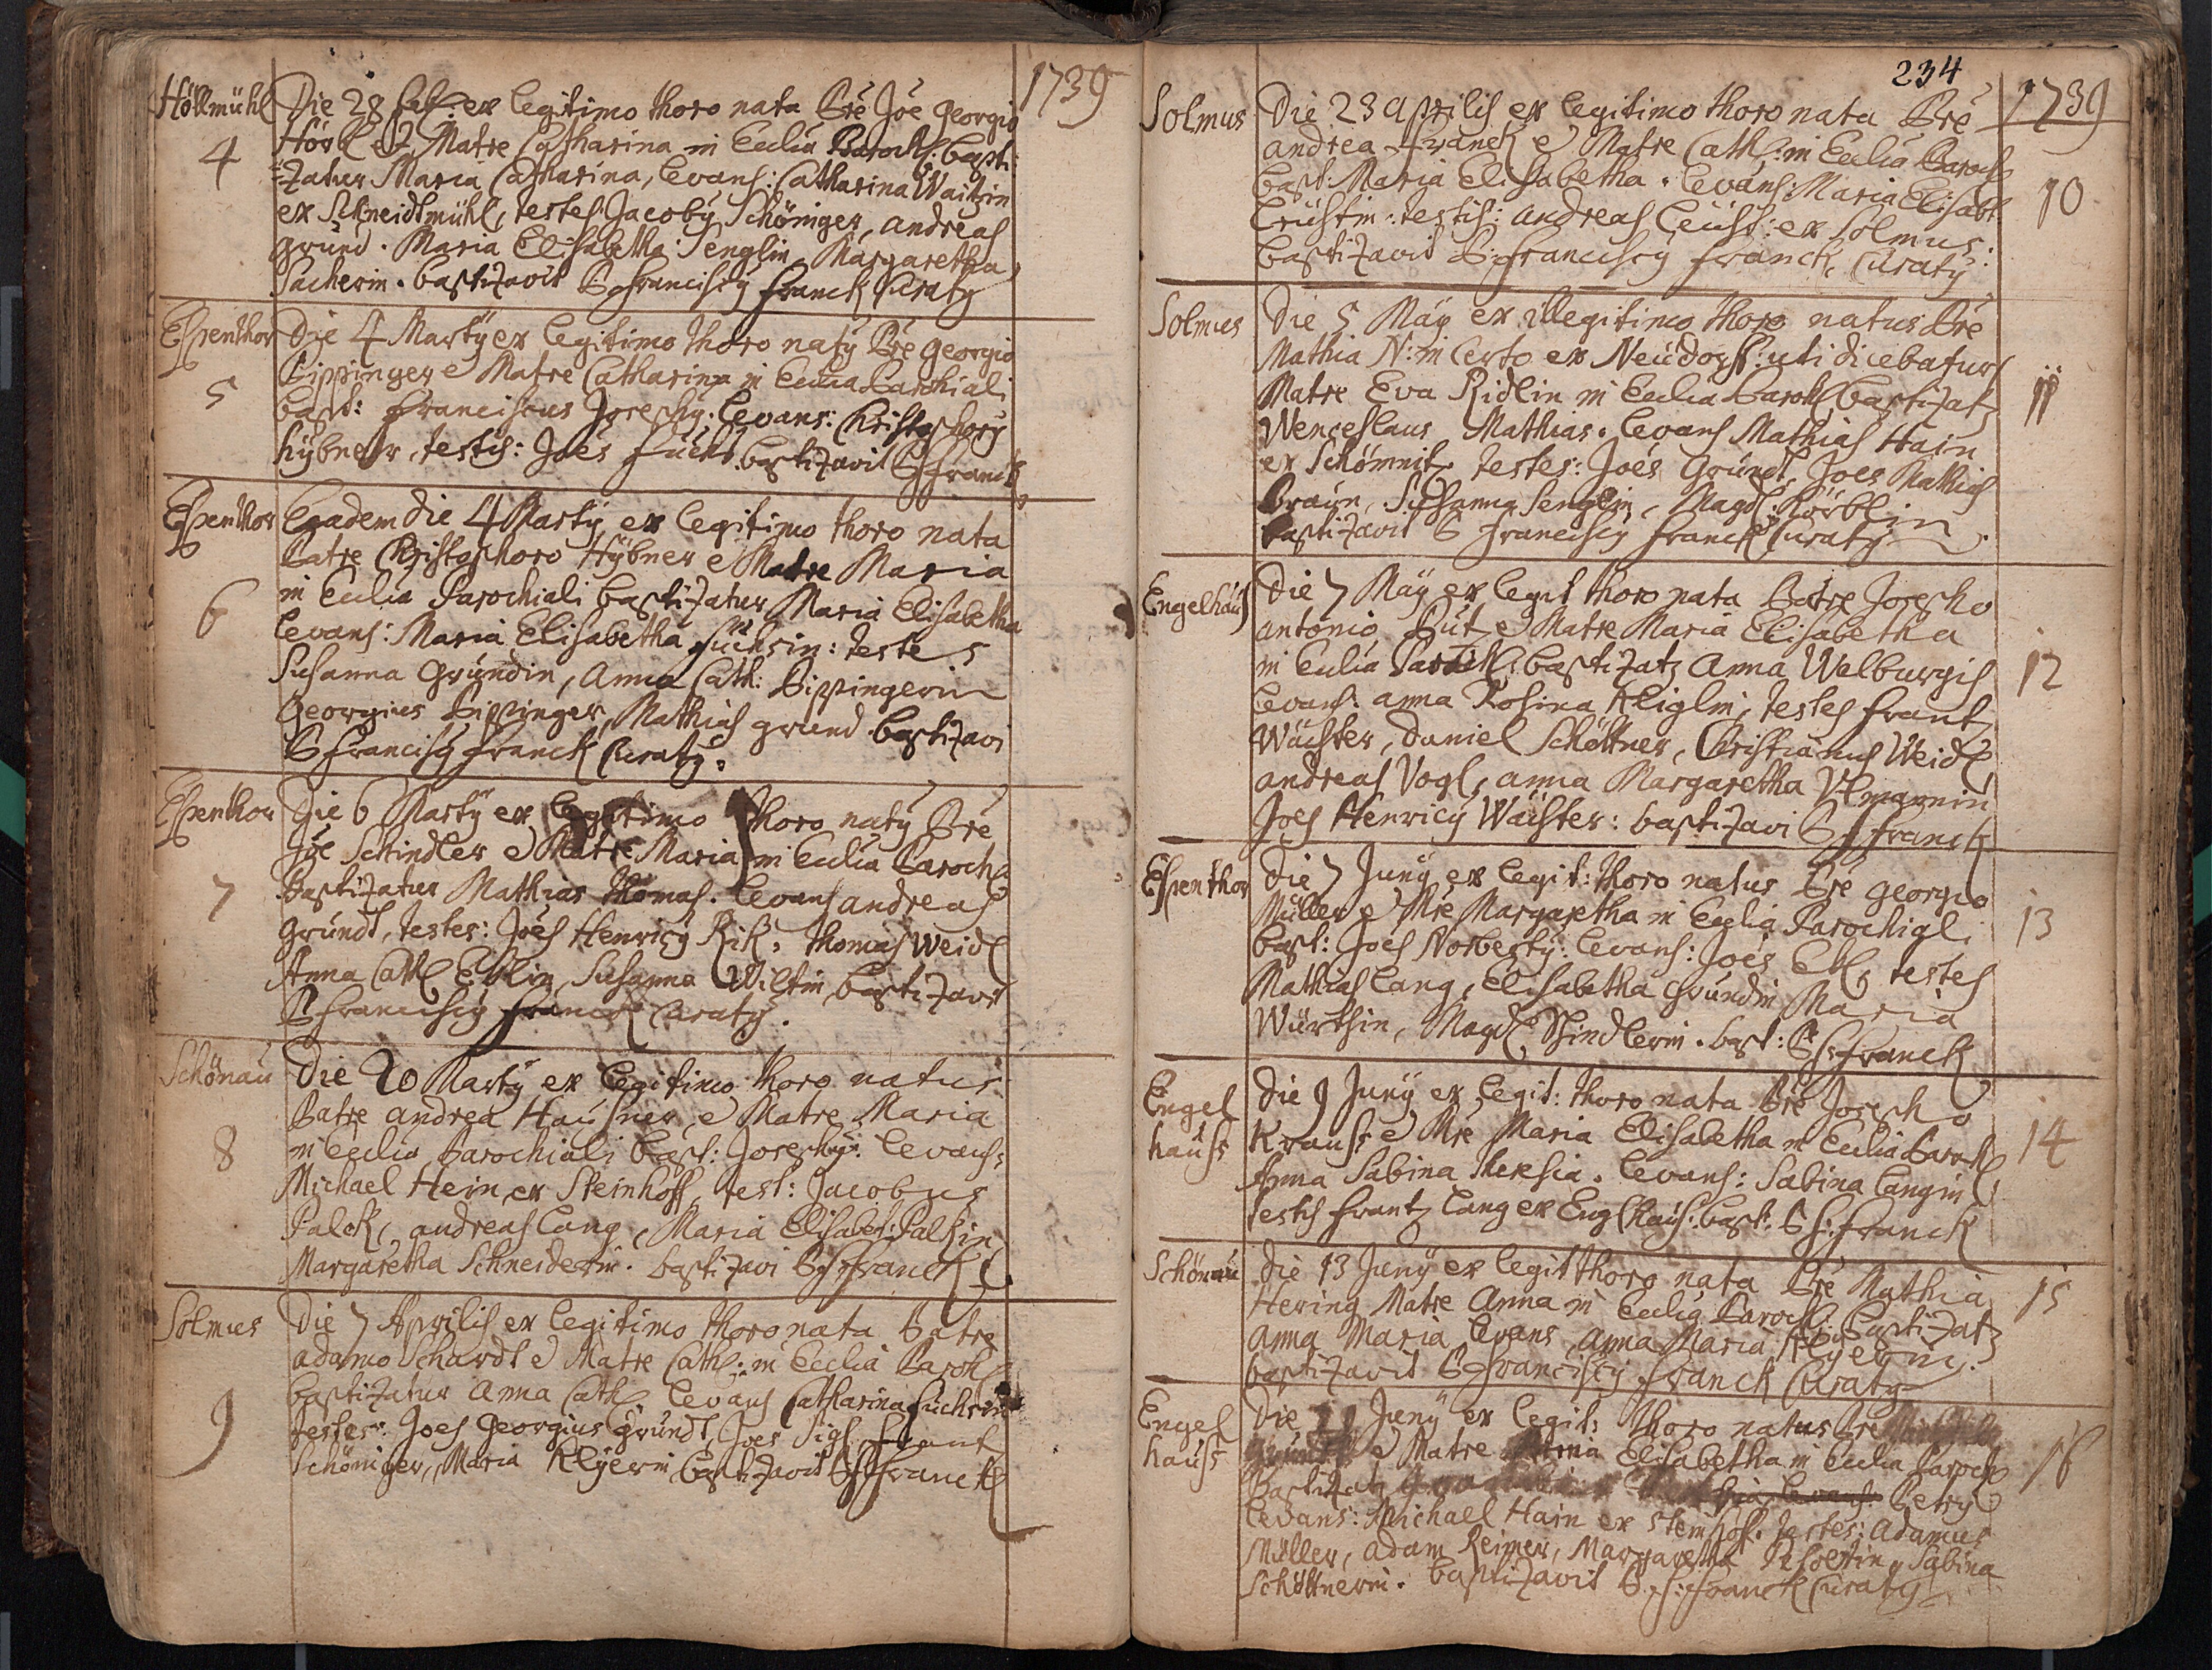 1739
Höllmühl
4
Die 28 Feb: ex legitimo thoro nata Pre Joe Georgio
Hörl et Matre Catharina in Ecclia Paroch: bapti:
=zatur Maria Catharina, levans: Catharina Waitzin
ex Schneidtmühl, testes: Jacoby Schöniger, Andreas
Grund. Maria Elisabetha Senglin Margaretha
Sacherin. baptizavit P. Franciscy Franck Curaty
Espenthor
5
Die 4 Martÿ ex legitimo thoro naty Pre Georgio
Pippinger e Matre Catharina in Ecclia Parochiali
bapt: Franciscus Josephy. levans: Christophory
Hÿbner, testis: Joes Fuchs baptizavit P F Franck
Espenthor
6
Eaadem die 4 Martÿ ex legitimo thoro nata
Patre Christophoro Hÿbner e Matre Maria
in Ecclia Parochiali baptizatur Maria Elisabetha
levans: Maria Elisabetha Fuchsin: testes
Susanna Gründin, Anna Cath: Pippingerin
Georgius Pippinger, Mathias Grund baptizavi
P Francisy Franck Curaty.
Espenthor
7
Die 6 Martÿ ex legitimo thoro naty Pre
Joe Schindler e Matre Maria in Ecclia Paroch
baptizatur Mathias Thomas. levans Andreas
Gründt, testes: Joes Henricy Rik, Thomas Weidl
Anna Cath Ettlin, Susanna Wiltin baptizavit
P Franciscy Franck Curaty.
Schönau
8
Die 20 Martÿ ex legitimo thoro natus
Patre Andrea Hausner, e Matre Maria
in Ecclia Parochiali bapt: Josephy. levans:
Michael Hein ex Steinhoff, test: Jacobus
Palck, Andreas Lang, Maria Elisabet: Palkin
Margaretha Schneiderin. baptizavi P F Franck C.
Solmus
9
Die 7 Aprilis ex legitimo thoro nata Patre
Adamo Schardt e Matre Cath: in Ecclia Paroch
baptizatur Anna Cath levans Catharina Fuchsin
testes: Joes Georgius Gründt, Joes Sigl Frant
Schöniger, Maria Klÿerin baptizavit P F Franck
234
1739
Solmus
10
Die 23 Aprilis ex legitimo thoro nata Pre
Andrea Franck e Matre Cath: in Ecclia Paroch
bapt: Maria Elisabetha. levans: Maria Elisabt
Leüstin: testis: Andreas Leüst: ex Solmus.
baptizavit P: Franciscy Franck, Curaty
Solmus
11
Die 5 Maÿ ex illegitimo thoro natus Pre
Mathia N: incerto ex Neüdorff: uti dicebatur
Matre Eva Ridlin in Ecclia Paroch baptizatz
Wenceslaus Mathias. levans Mathias Hain
ex Schömnitz testes: Joes Gründt, Joes Mathias
Braun, Susanna Senglin, Magd: Körblin
baptizavit P Franciscy Franck Curaty.
Engelhaus
12
Die 7 Maÿ ex legit thoro nata Patre Josepho
Antonio Püt e Matre Maria Elisabetha
in Ecclia Paroch: baptizatz Anna Welburgis
levans: Anna Rosina Kliglin, testes Frantz
Wächter, Daniel Schöttner, Christianus Weidl
Andreas Vogl, Anna Margaretha Ulmannin
Joes Henricy Wächter: baptizavi P F Franck
Espenthor
13
Die 7 Junÿ ex legit: thoro natus Pre Georgio
Müller e Mre Margaretha in Ecclia Parochiali
bapt: Joes Norberty: levans: Joes Ettl, testes
Mathias Lang, Elisabetha Gründin Maria
Würthin, Magd: Shindlerin. bapt: P F: Franck
Engel
hauss
14
Die 9 Junÿ ex legit: thoro nata Pre Josepho
Krauss e Mre Maria Elisabetha in Ecclia Paroch
Anna Sabina Theresia. levans: Sabina Langin
testes Frantz Lang ex Englhaus. bapt. P F: Franck
Schönau
15
Die 13 Junÿ ex legit thoro nata Pre Mathia
Hering Matre Anna in Ecclia Paroch: baptizatz
Anna Maria levans Anna Maria Klÿerin.
baptizavit P Franciscy Franck Curaty
Engel
hauss
16
Die Junÿ ex legit: thoro natus Pre
e Matre Anna Elisabetha in Ecclia Paroch
Baptizatz Petry
levans: Michael Hain ex Steinhoff. testes: Adamus
Müller, Adam Reimer, Margaretha Sabina
Schöttnerin. baptizavit P. F: Franck Curaty